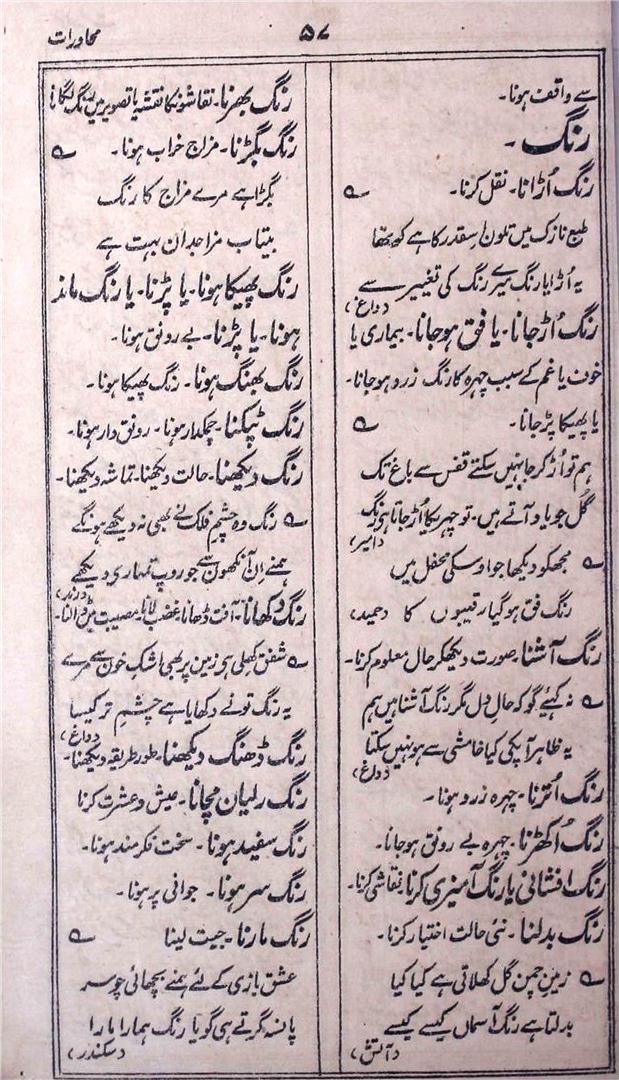 محاورات
۵۷
سے واقف ہونا۔
رنگ۔
رنگ اُڑانا۔ نقل کرنا۔ ؎
طبع نازک میں تلون اسقدر کا ہے کو تھا
یہ اُڑایا رنگ میرے رنگ کی تغییر سے
(داغ)
رنگ اُڑ جانا۔ یا فق ہوجانا۔ بیماری یا
خوف یا غم کے سبب چہرہ کا رنگ زرد ہوجانا۔
یا پھیکا پڑجانا۔ ؎
ہم تو اُڑ کر جا نہیں سکتے قفس سے باغ تک
گُل جو یاد آتے ہیں۔ تو چہریکا اُڑ جاتا ہی رنگ
(امیر)
؎ مجھکو دیکھا جو اوسکی محفل میں
رنگ فق ہوگیا رقیبوں کا (حمید)
رنگ آشنا۔ صورت دیکھکر حال معلوم کرنا۔
؎ نہ کہیئے گو کہ حالِ دل مگر رنگ آشنا ہیں ہم
یہ ظاہر آپکی کیا خامشی سے ہو نہیں سکتا
(داغ)
رنگ اُترنا۔ چہرہ زرد ہونا۔
رنگ اُکھڑنا۔ چہرہ بے رونق ہوجانا۔
رنگ افشانی یا رنگ آمیزی کرنا۔ نقاشی کرنا۔
رنگ بدلنا۔ نئی حالت اختیار کرنا۔
؎ زمینِ چمن گل کھلاتی ہے کیا کیا
بدلتا ہے رنگ آسماں کیسے کیسے
(آتش)
رنگ بھرنا۔ نقاشونکا نقشہ یا تصویر میں رنگ لگانا
رنگ بگڑنا۔ مزاج خراب ہونا۔ ؎
بگڑا ہے مرے مزاج کا رنگ
بیتاب مزاجدان بہت ہے
رنگ پھیکا ہونا۔ یا پڑنا۔ یا رنگ ماند
ہونا۔ یا پڑنا۔ بے رونق ہونا۔
رنگ بھنگ ہونا۔ رنگ پھیکا ہونا۔
رنگ ٹپکنا۔ چمکدار ہونا۔ رونق دار ہونا۔
رنگ دیکھنا۔ حالت دیکھنا۔ تماشہ دیکھنا۔
؎ رنگ وہ چشم فلک نے بھی نہ دیکھے ہونگے
ہمنے اِن آنکھوں سے جو روپ تمہاری دیکھے
(رند)
رنگ دکھانا۔ آفت ڈھانا۔ غضب لانا۔ مصیبت میں ڈالنا۔
؎ شفق کھلی ہی زمین پر بھی اشکِ خون سے مرے
یہ رنگ تونے دکھایا ہے چشمِ تر کیسا
(داغ)
رنگ ڈھنگ دیکھنا۔ طور طریقہ دیکھنا۔
رنگ رلیان مچانا۔ عیش و عشرت کرنا
رنگ سفید ہونا۔ سخت فکرمند ہونا۔
رنگ سر ہونا۔ جوانی پر ہونا۔
رنگ مارنا۔ جیت لینا ؎
عشق بازی کے لئے ہمنے بچھائی چوسر
پانسہ گرتے ہی گویا رنگ ہمارا مارا
(سکندر)